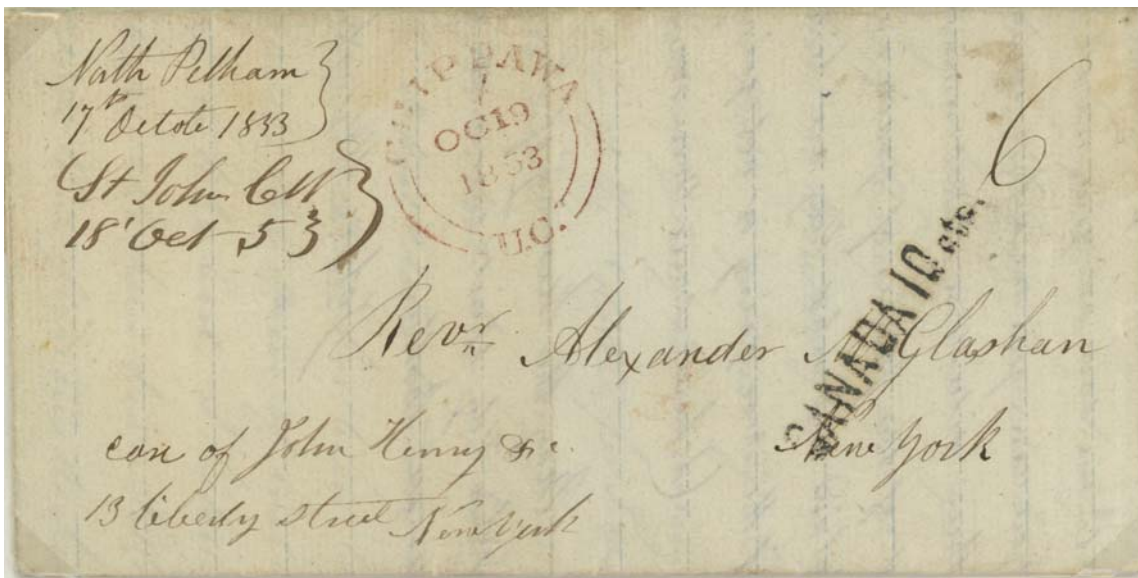 North Pelham
17th Octobr 1853
St Johns CW
18' Oct 53
CHIPPAWA
OC 19
1853
U.C.
6
CANADA 10 cts.
Revr Alexander McGlashan
New York
care of John Henry &c.
13 liberty street New York